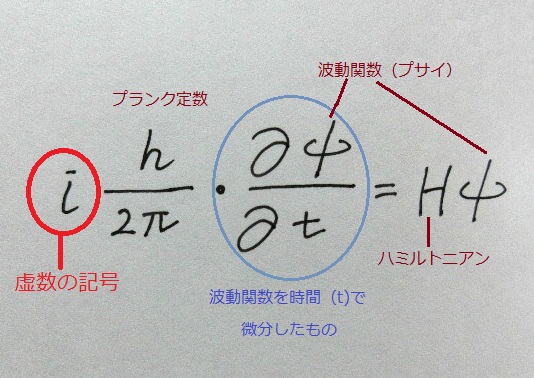 波動関数（プサイ）
プランク定数
i h/2π · ∂ψ/∂t = Hψ
虚数の記号
ハミルトニアン
波動関数を時間（t）で
微分したもの